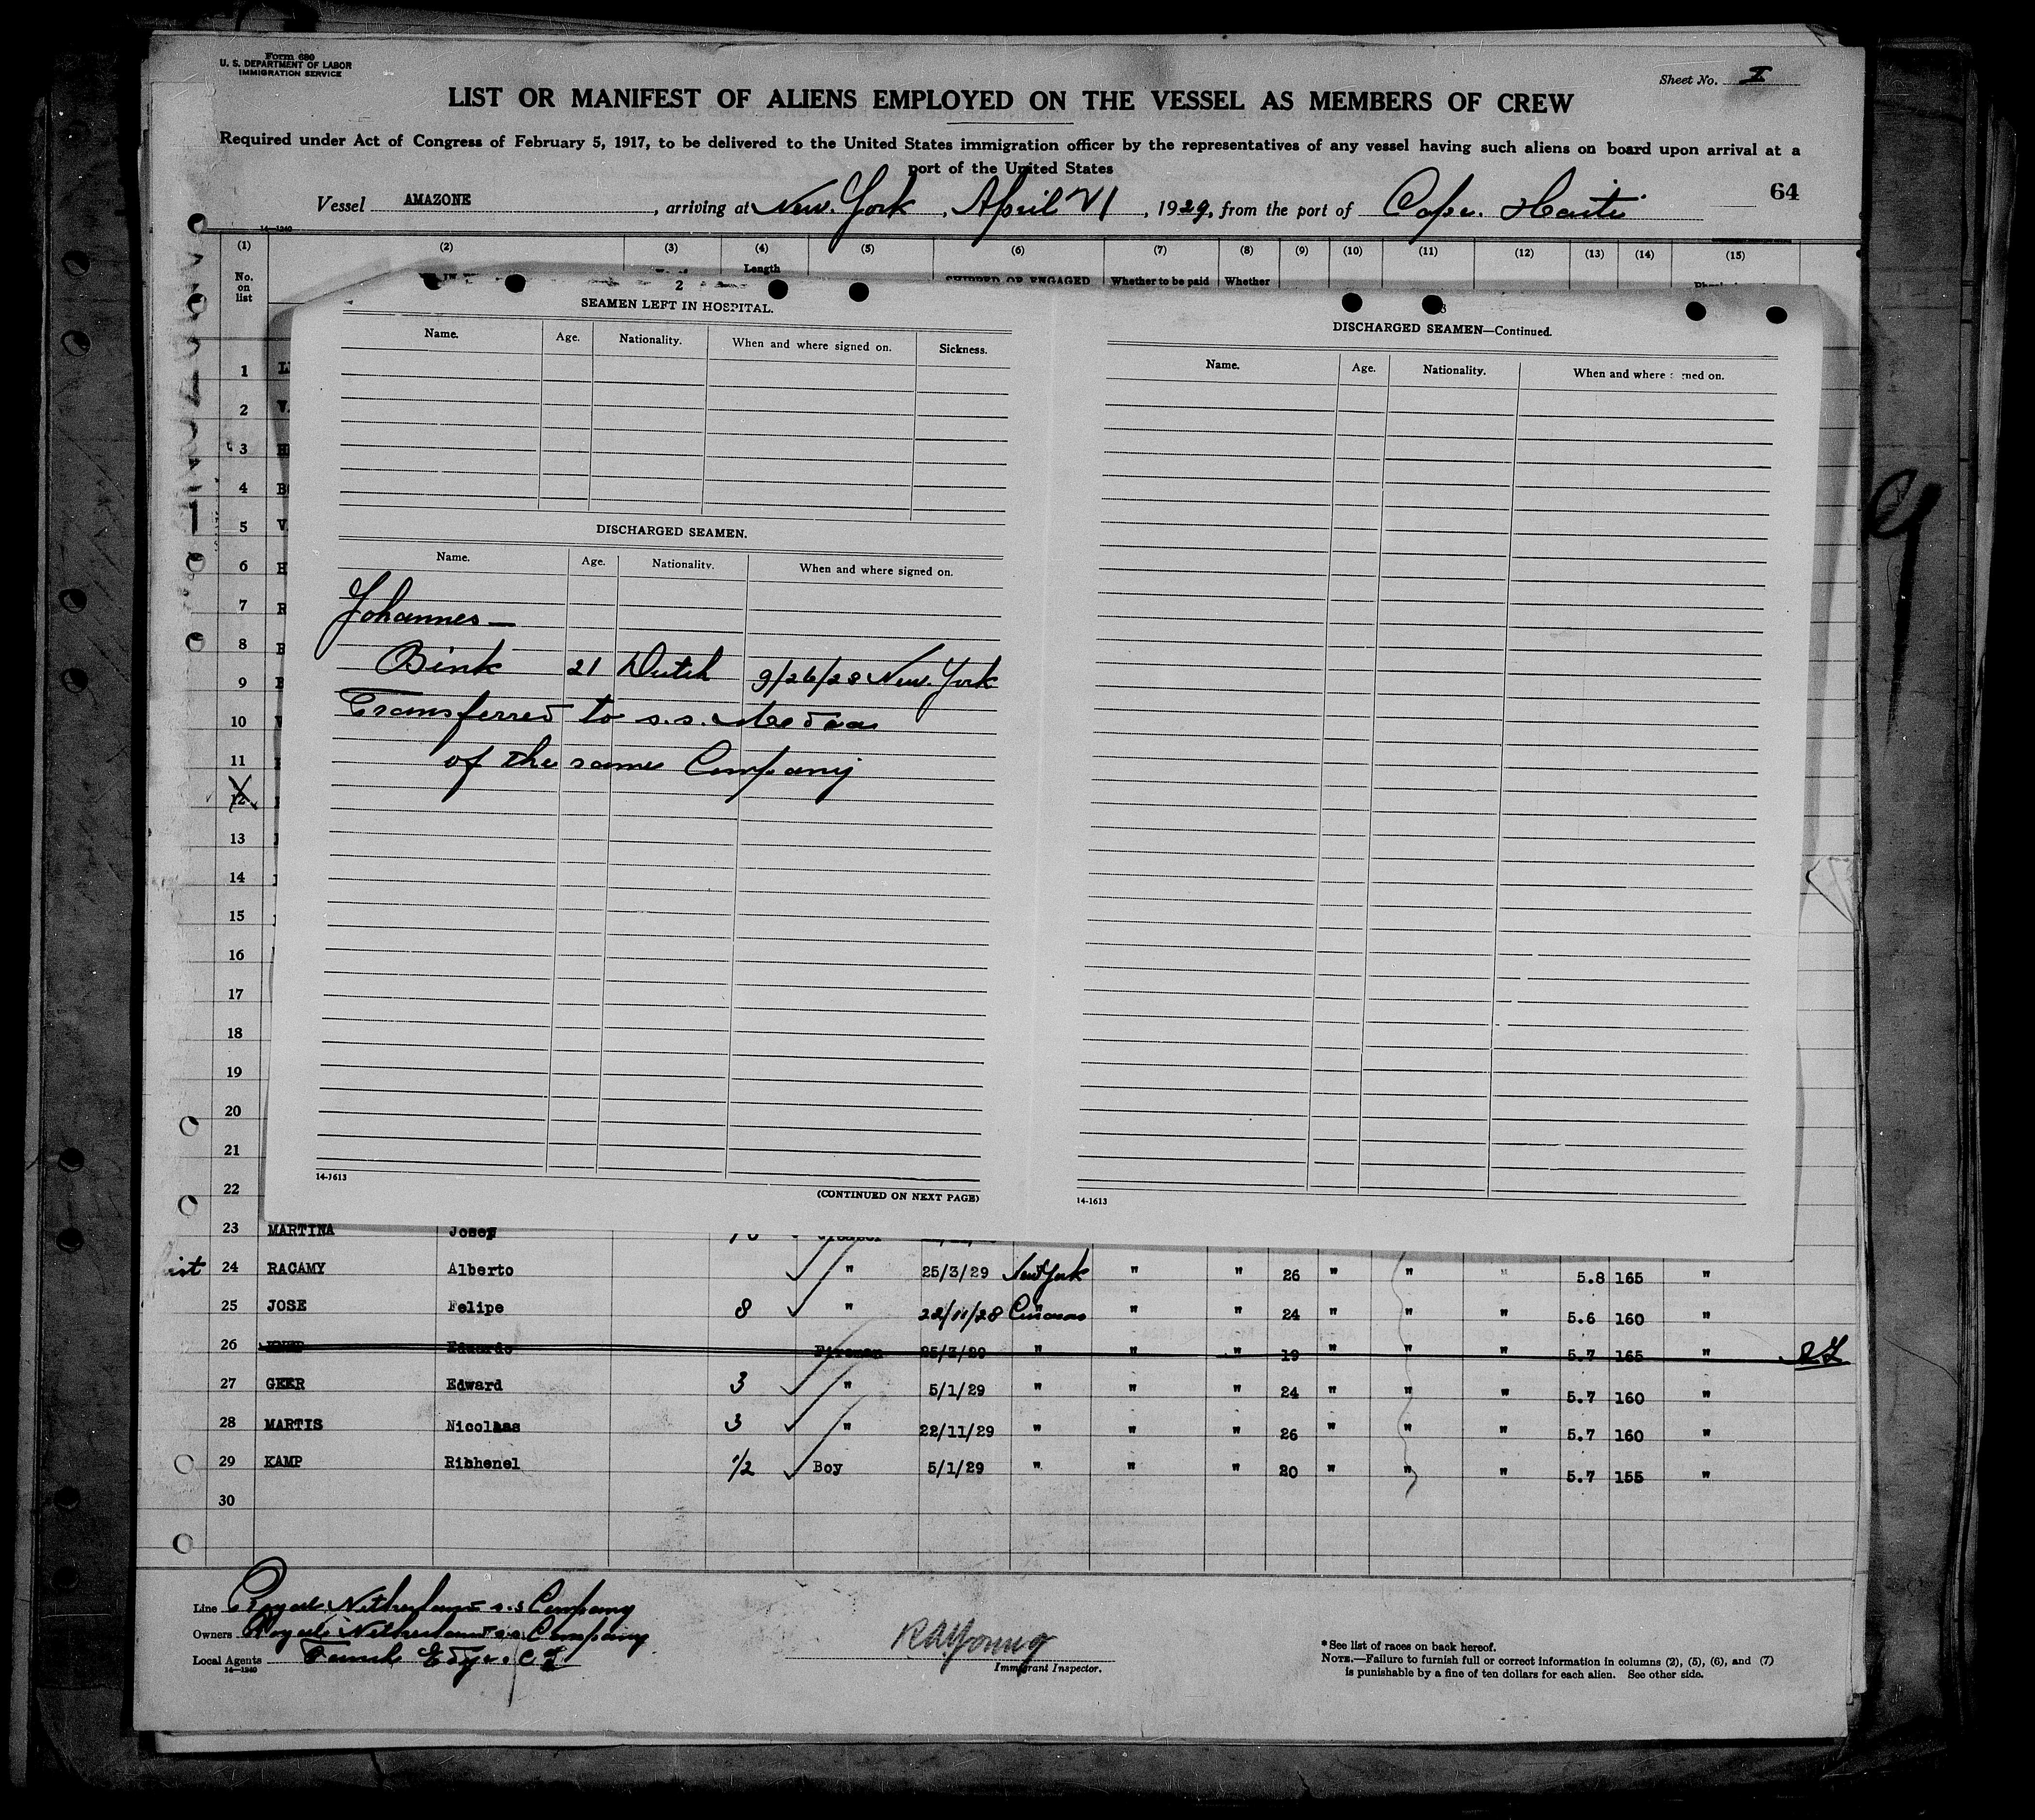 Form 680
U. S. DEPARTMENT OF LABOR
IMMIGRATION SERVICE
Sheet No. I
LIST OR MANIFEST OF ALIENS EMPLOYED ON THE VESSEL AS MEMBERS OF CREW
Required under Act of Congress of February 5, 1917, to be delivered to the United States immigration officer by the representatives of any vessel having such aliens on board upon arrival at a
port of the United States
64
Vessel AMAZONE, arriving at New York, April 21, 1929, from the port of Cape Haiti
14—1240
(1) (2) (3) (4) (5) (6) (7) (8) (9) (10) (11) (12) (13) (14) (15)
No. on list
Length
SHIPPED OR ENGAGED Whether to be paid Whether
2
SEAMEN LEFT IN HOSPITAL.
Name. Age. Nationality. When and where signed on. Sickness.
DISCHARGED SEAMEN.
Name. Age. Nationality. When and where signed on.
Johannes—
Bink 21 Dutch 9/26/28 New York
Transferred to s.s. Medea
of the same Company
14-1613
(CONTINUED ON NEXT PAGE)
3
DISCHARGED SEAMEN—Continued.
Name. Age. Nationality. When and where signed on.
14-1613
1
2
3
4
5
6
7
8
9
10
11
12
13
14
15
16
17
18
19
20
21
22
23 MARTINA Josef
24 RACAMY Alberto " 25/3/29 New York " " 26 " " " 5.8 165 "
25 JOSE Felipe 8 " 22/11/28 Curacao " " 24 " " " 5.6 160 "
26 Eduardo Fireman 25/3/29 " " " 19 " " " 5.7 165 "
27 GEER Edward 3 " 5/1/29 " " " 24 " " " 5.7 160 "
28 MARTIS Nicolaas 3 " 22/11/29 " " " 26 " " " 5.7 160 "
29 KAMP Richenel 1/2 Boy 5/1/29 " " " 20 " " " 5.7 155 "
30
Line Royal Netherland s.s Company
Owners Royal Netherland s.s. Company
Local Agents Funch Edye & Co
14—1240
R A Young
Immigrant Inspector.
* See list of races on back hereof.
NOTE.—Failure to furnish full or correct information in columns (2), (5), (6), and (7)
is punishable by a fine of ten dollars for each alien. See other side.